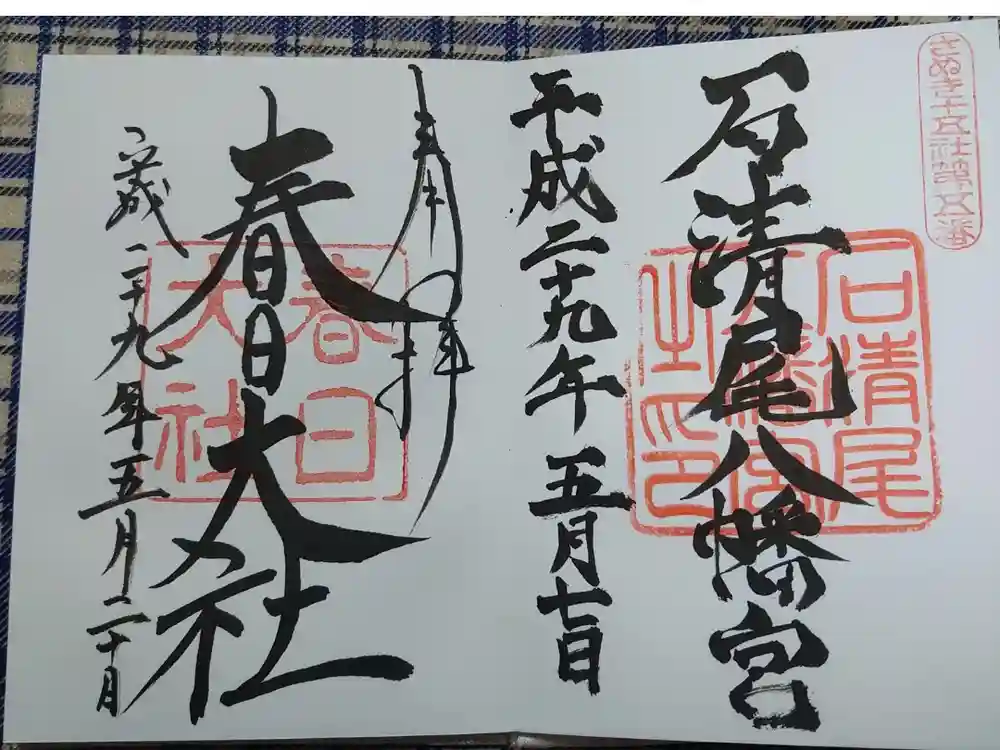 さぬき十五社第五番
石清尾八幡宮
石清尾
八幡宮
之印
平成二十九年五月七日
奉拝
春日大社
春日
大社
平成二十九年五月二十日